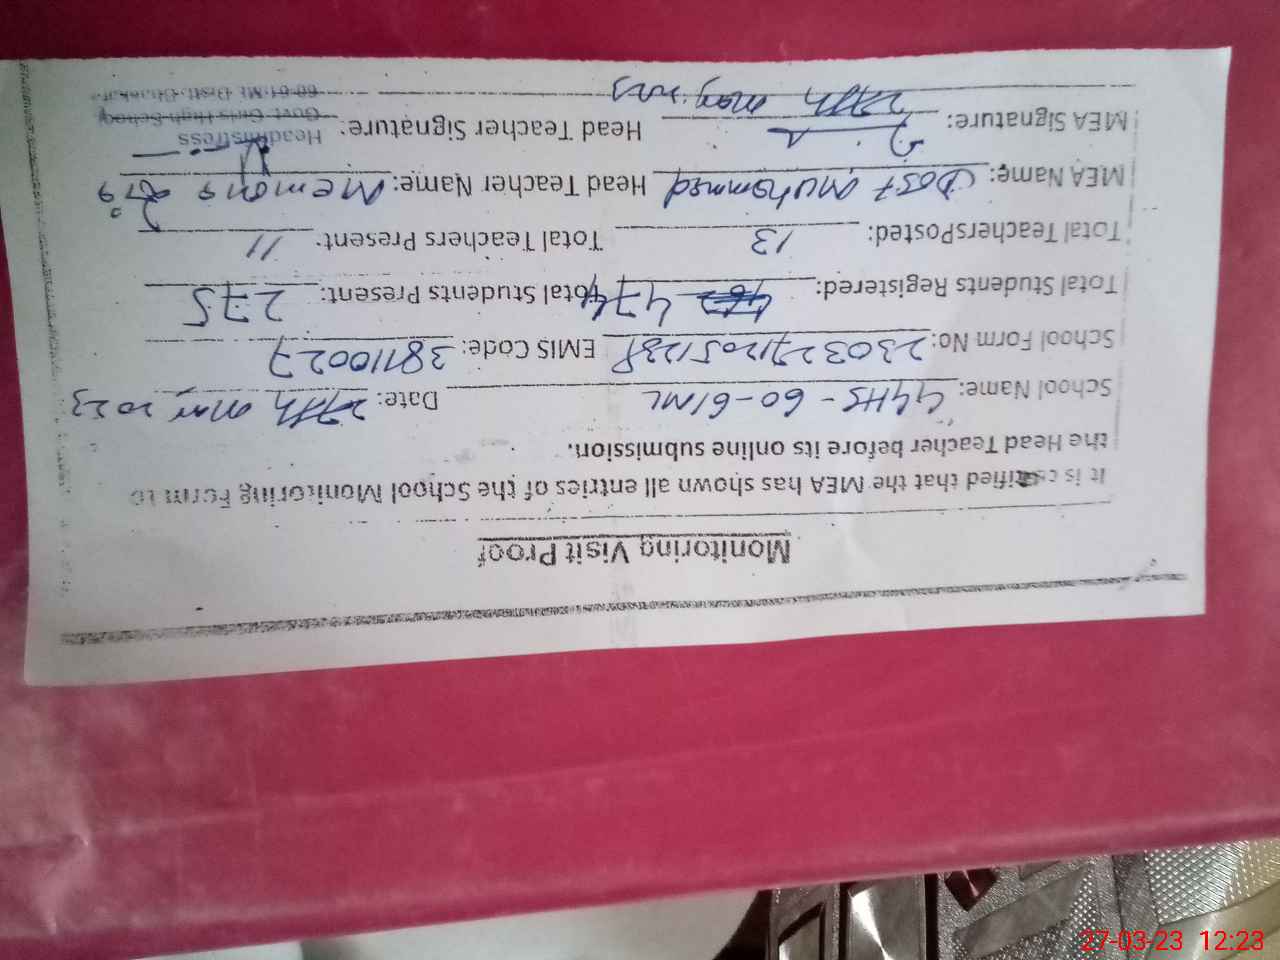 Monitoring Visit Proof
It is certified that the MEA has shown all entries of the School Monitoring Form to
the Head Teacher before its online submission.
School Name: GGHS - 60-61/ML Date: 27th may 2023
School Form No: EMIS Code: 38110027
Total Students Registered: 474 Total Students Present: 275
Total TeachersPosted: 13 Total Teachers Present: 11
MEA Name: Dost Muhammad Head Teacher Name: Memona
MEA Signature: Head Teacher Signature: Headmistress
Govt. Girls High School
27th may 2023 60-61/ML Distt. Bhakkar
27-03-23 12:23